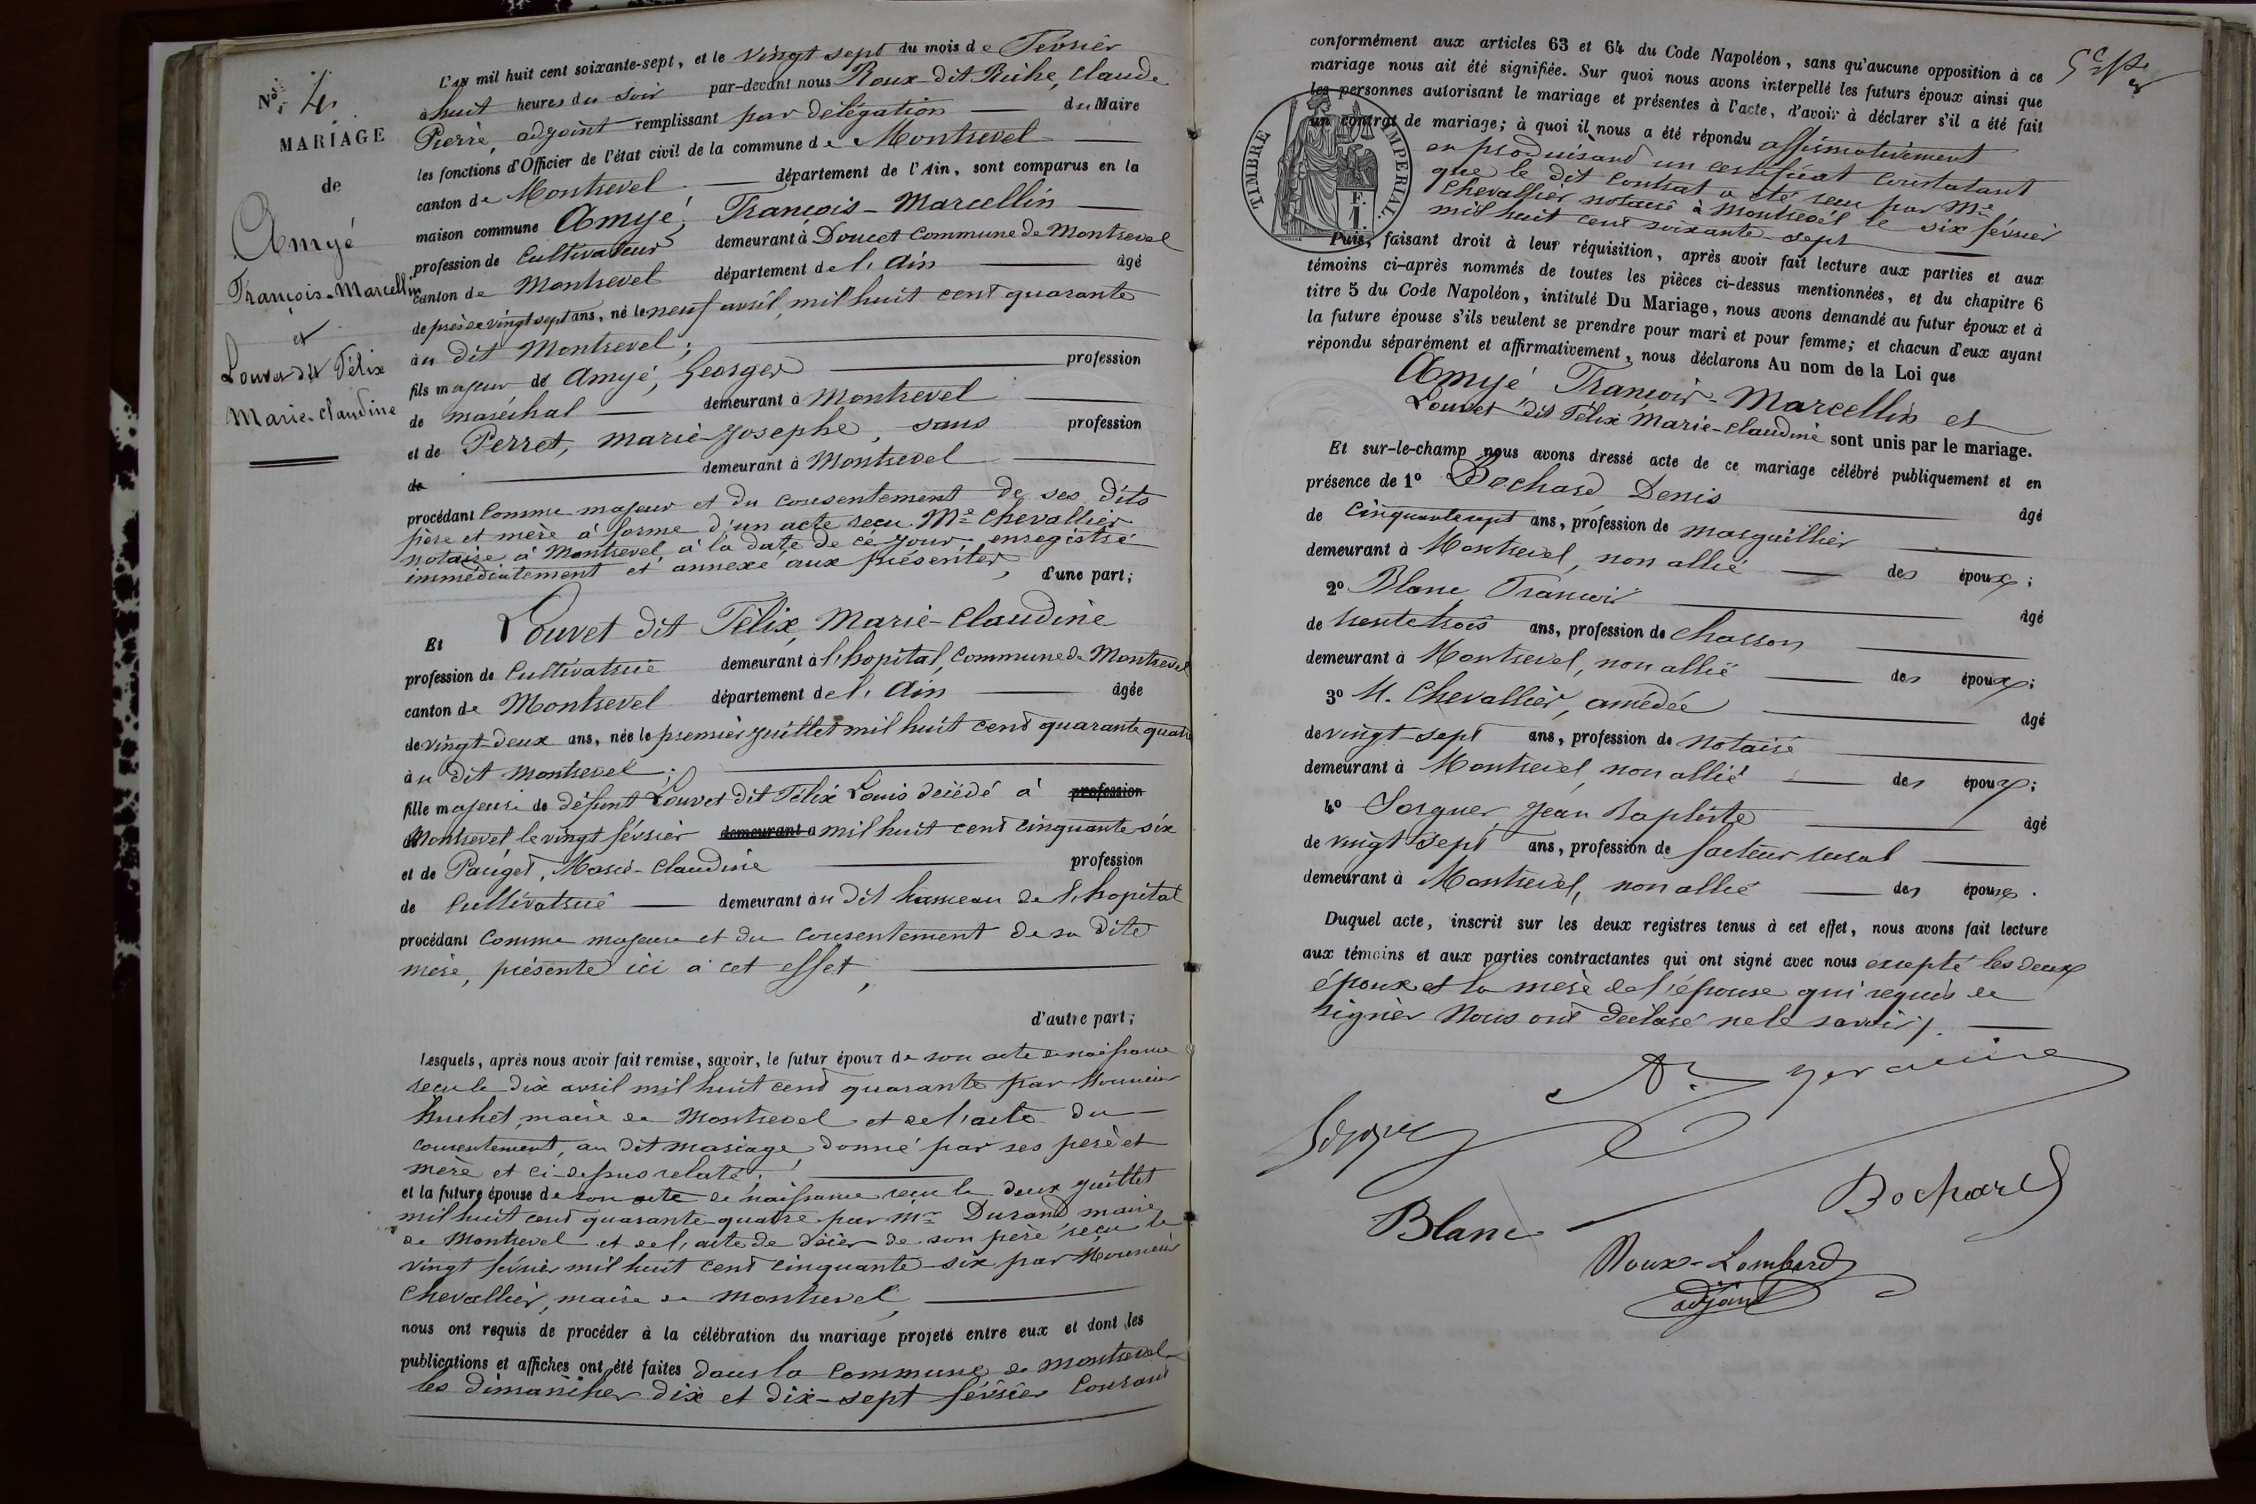 N° 4.
MARIAGE
de
Amyé
François-Marcellin
et
Louvet dit Félix
Marie-Claudine
L'an mil huit cent soixante-sept, et le vingt sept du mois de Février
à huit heures du soir par-devant nous Roux dit Riche, Claude
Pierre, adjoint remplissant par délégation du Maire
les fonctions d'Officier de l'état civil de la commune de Montrevel
canton de Montrevel département de l'Ain, sont comparus en la
maison commune Amyé, François-Marcellin
profession de Cultivateur demeurant à Doucet Commune de Montrevel
canton de Montrevel département de l'Ain âgé
de près de vingt sept ans, né le neuf avril, mil huit cent quarante
au dit Montrevel;
fils majeur de Amyé, Georges profession
de maréchal demeurant à Montrevel
et de Perret, Marie-Josephe, sans profession
de demeurant à Montrevel
procédant comme majeur et du consentement de ses dits
père et mère à forme d'un acte reçu Me Chevallier
notaire à Montrevel à la date de ce jour, enregistré
immédiatement et annexé aux présentes, d'une part;
Et Louvet dit Félix, Marie-Claudine
profession de Cultivatrice demeurant à l'hopital, Commune de Montrevel
canton de Montrevel département de l'Ain âgée
de vingt-deux ans, née le premier juillet mil huit cent quarante quatre
au dit Montrevel;
fille majeure de défunt Louvet dit Félix Louis décédé à profession
Montrevel, le vingt février demeurant à mil huit cent cinquante six
et de Pauget, Marie-Claudine profession
de Cultivatrice demeurant au dit hameau de l'hopital
procédant comme majeure et du consentement de sa dite
mère, présente ici à cet effet,
d'autre part;
Lesquels, après nous avoir fait remise, savoir, le futur époux de son acte de naissance
reçu le dix avril mil huit cent quarante par Monsieur
Huchet, maire de Montrevel et de l'acte du
consentement, au dit mariage, donné par ses père et
mère et ci-dessus relaté;
et la future épouse de son acte de naissance reçu le deux juillet
mil huit cent quarante-quatre par Mr Durand maire
de Montrevel et de l'acte de décès de son père reçu le
vingt février mil huit cent cinquante-six par Monsieur
Chevallier, maire de Montrevel,
nous ont requis de procéder à la célébration du mariage projeté entre eux et dont les
publications et affiches ont été faites dans la Commune de Montrevel
les dimanches dix et dix-sept février courant
conformément aux articles 63 et 64 du Code Napoléon, sans qu'aucune opposition à ce
mariage nous ait été signifiée. Sur quoi nous avons interpellé les futurs époux ainsi que
les personnes autorisant le mariage et présentes à l'acte, d'avoir à déclarer s'il a été fait
un contrat de mariage; à quoi il nous a été répondu affirmativement
en produisant un certificat constatant
que le dit contrat a été reçu par Me
Chevallier notaire à Montrevel le six février
mil huit cent soixante-sept
TIMBRE IMPÉRIAL.
1 F.
Puis, faisant droit à leur réquisition, après avoir fait lecture aux parties et aux
témoins ci-après nommés de toutes les pièces ci-dessus mentionnées, et du chapitre 6
titre 5 du Code Napoléon, intitulé Du Mariage, nous avons demandé au futur époux et à
la future épouse s'ils veulent se prendre pour mari et pour femme; et chacun d'eux ayant
répondu séparément et affirmativement, nous déclarons Au nom de la Loi que
Amyé François-Marcellin et
Louvet dit Félix Marie-Claudine sont unis par le mariage.
Et sur-le-champ nous avons dressé acte de ce mariage célébré publiquement et en
présence de 1° Bochard Denis âgé
de cinquante sept ans, profession de marguillier
demeurant à Montrevel, non allié des époux;
2° Blanc François âgé
de trente trois ans, profession de charron
demeurant à Montrevel, non allié des époux;
3° M. Chevallier, amédée âgé
de vingt-sept ans, profession de notaire
demeurant à Montrevel, non allié des époux;
4° Jean Baptiste âgé
de vingt sept ans, profession de facteur rural
demeurant à Montrevel, non allié des époux.
Duquel acte, inscrit sur les deux registres tenus à cet effet, nous avons fait lecture
aux témoins et aux parties contractantes qui ont signé avec nous excepté les deux
époux et la mère de l'épouse qui requis de
signer Nous ont déclaré ne le savoir.
Bochard
Blanc
Roux-Lombard
adjoint